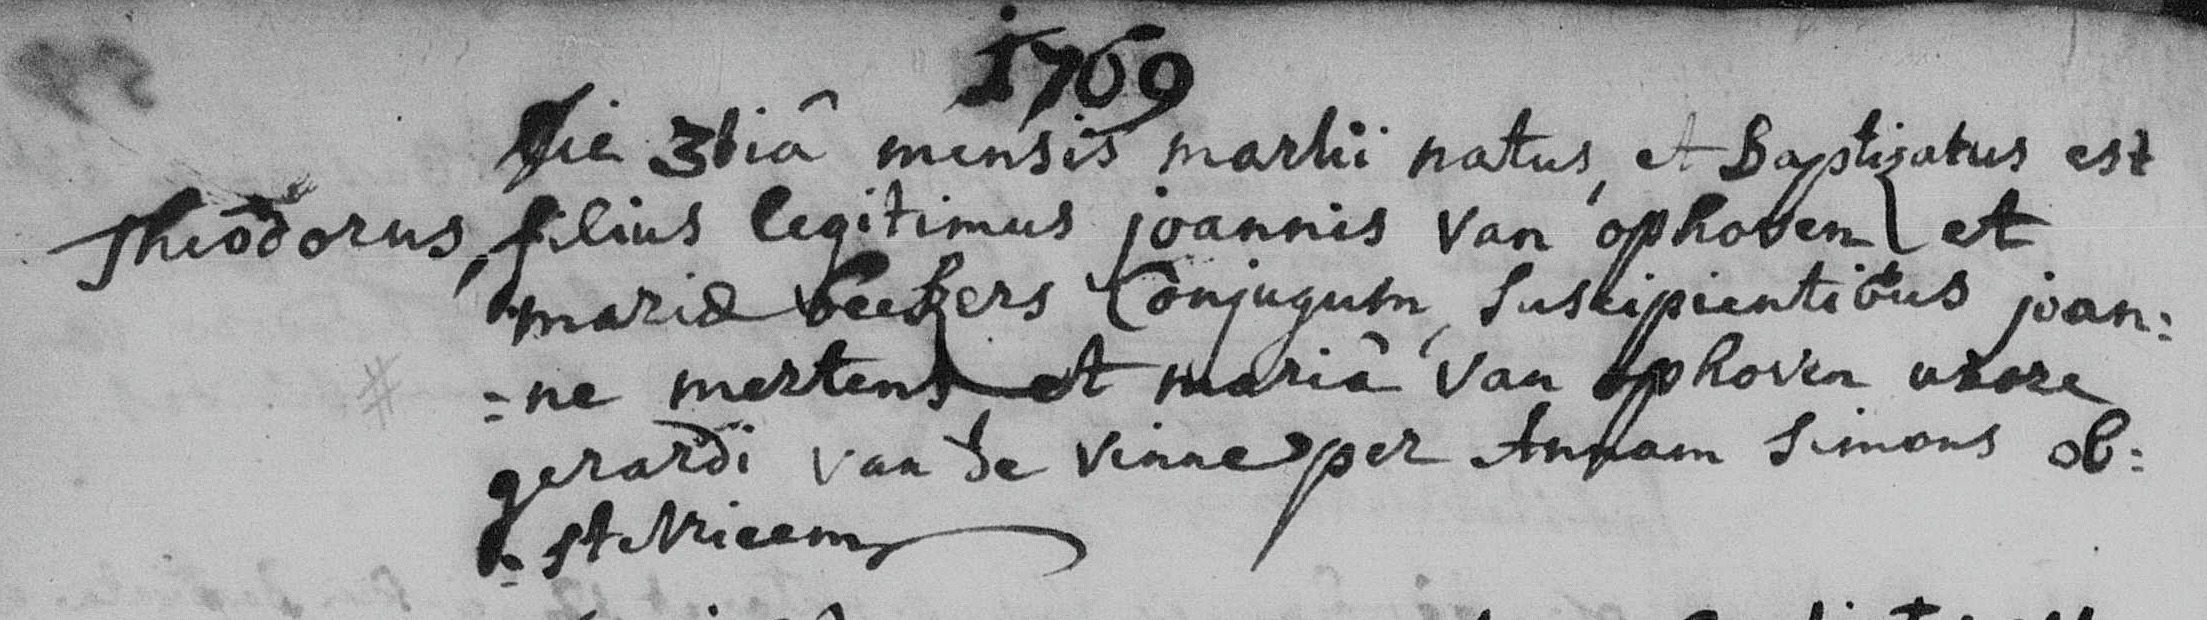 1769
Die 3tiâ mensis martii natus, et Baptisatus est
Theodorus, filius legitimus joannis van ophoven et
mariæ beekers Conjugum, suscipientibus joan:
:ne mertens et mariâ van ophoven uxore
gerardi van de vinne per Annam Simons ob:
:stetricem